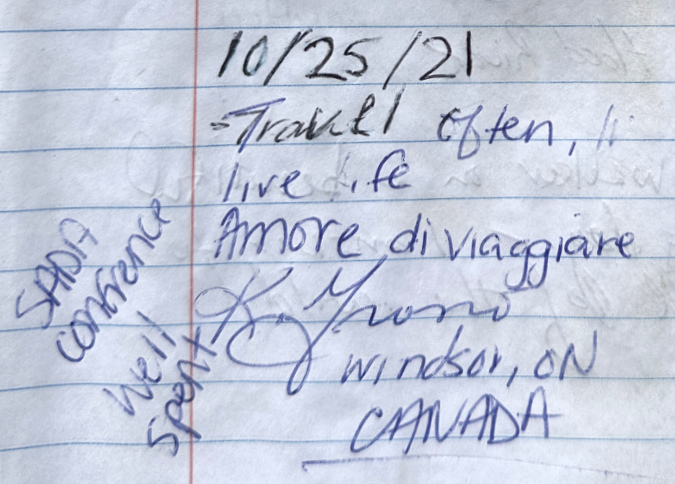 10/25/21
-Travel often, li
live life
Amore di viaggiare
K.
Windsor, ON
CANADA
SADA
confrence
Well
Spent